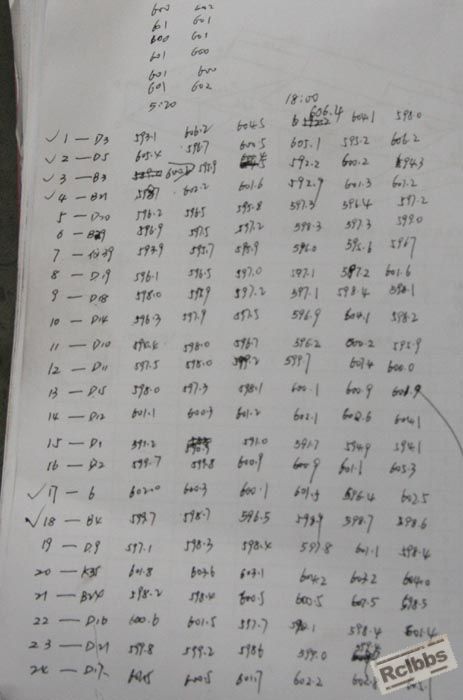 600 602
601 601
600 601
601 600
601 600
601 602
5:20 18:00
606.4
✓ 1 — D3 593.1 606.2 604.5 604.1 598.0
✓ 2 — D5 605.4 596.7 600.5 605.1 595.2 606.2
✓ 3 — B3 595.9 592.2 600.2 594.3
✓ 4 — B21 598.7 602.2 601.6 592.9 601.3 601.2
5 — D20 596.2 596.5 595.8 597.3 596.4 597.2
6 — 596.9 597.5 597.2 598.3 597.3 599.0
7 — 593.9 595.7 595.9 596.0 595.6 596.7
8 — D19 596.1 596.5 597.0 597.1 597.2 601.6
9 — D18 598.0 598.9 597.2 597.1 598.4 598.1
10 — D14 596.3 597.9 597.5 596.9 604.1 598.2
11 — D10 598.0 596.7 596.2 600.2 595.9
12 — D11 597.5 598.0 599.2 599.7 600.0
13 — D15 598.0 597.3 598.1 600.1 600.9
14 — D12 601.1 600.3 601.2 602.1 604.1
15 — D1 591.0 594.9 594.1
16 — D2 599.7 599.8 600.9 600.9 601.1 605.3
✓ 17 — 6 602.0 600.3 600.1 596.4 602.5
✓ 18 — B4 599.7 598.7 596.5 598.9 598.7 598.6
19 — D9 597.1 598.3 598.4 597.8 601.1 598.4
20 — K35 601.8 603.6 603.1 604.2 603.2 604.0
21 — B24 598.2 598.4 600.5 600.5 607.5 598.5
22 — D16 600.6 601.5 597.7 598.4 601.4
23 — D21 599.8 599.2 598.6 599.0
24 — D17 600.5 601.7 602.2 602.8
Rclbbs